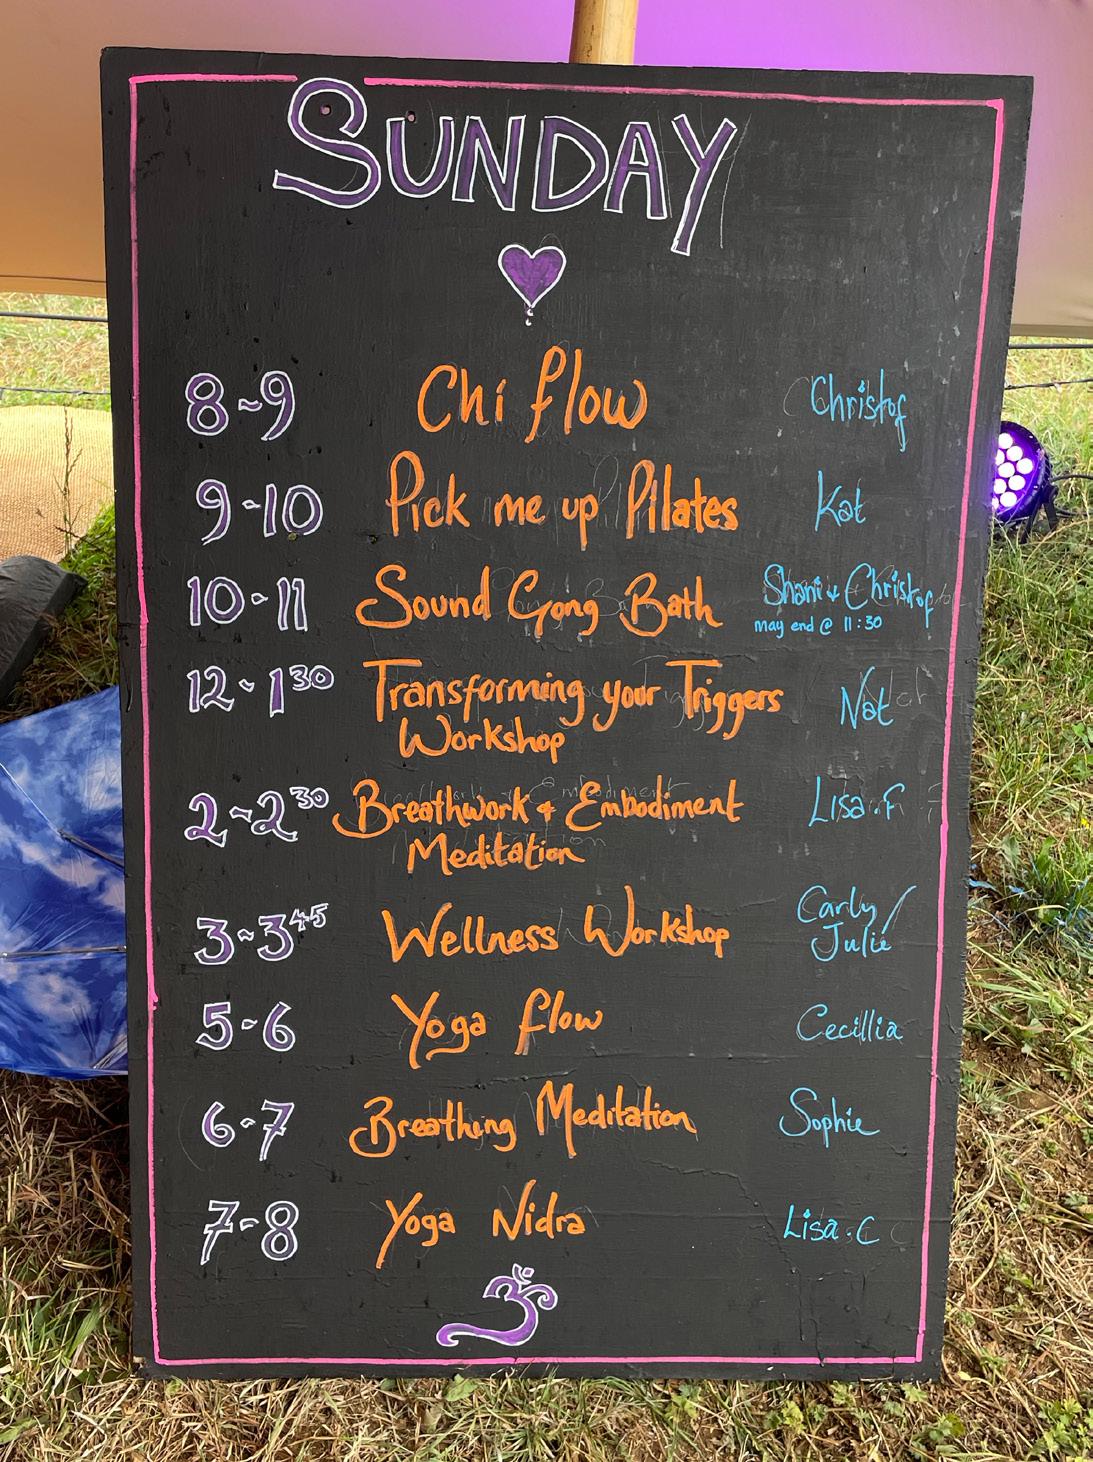 SUNDAY
8~9 Chi flow Christof
9-10 Pick me up Pilates Kat
10-11 Sound Gong Bath Shani + Christof
may end @ 11:30
12-1 30 Transforming your Triggers Nat
Workshop
2-2 30 Breathwork + Embodiment Lisa.F
Meditation
3-3 45 Wellness Workshop Carly/
Julie
5-6 Yoga flow Cecillia
6-7 Breathing Meditation Sophie
7-8 Yoga Nidra Lisa.C
ॐ